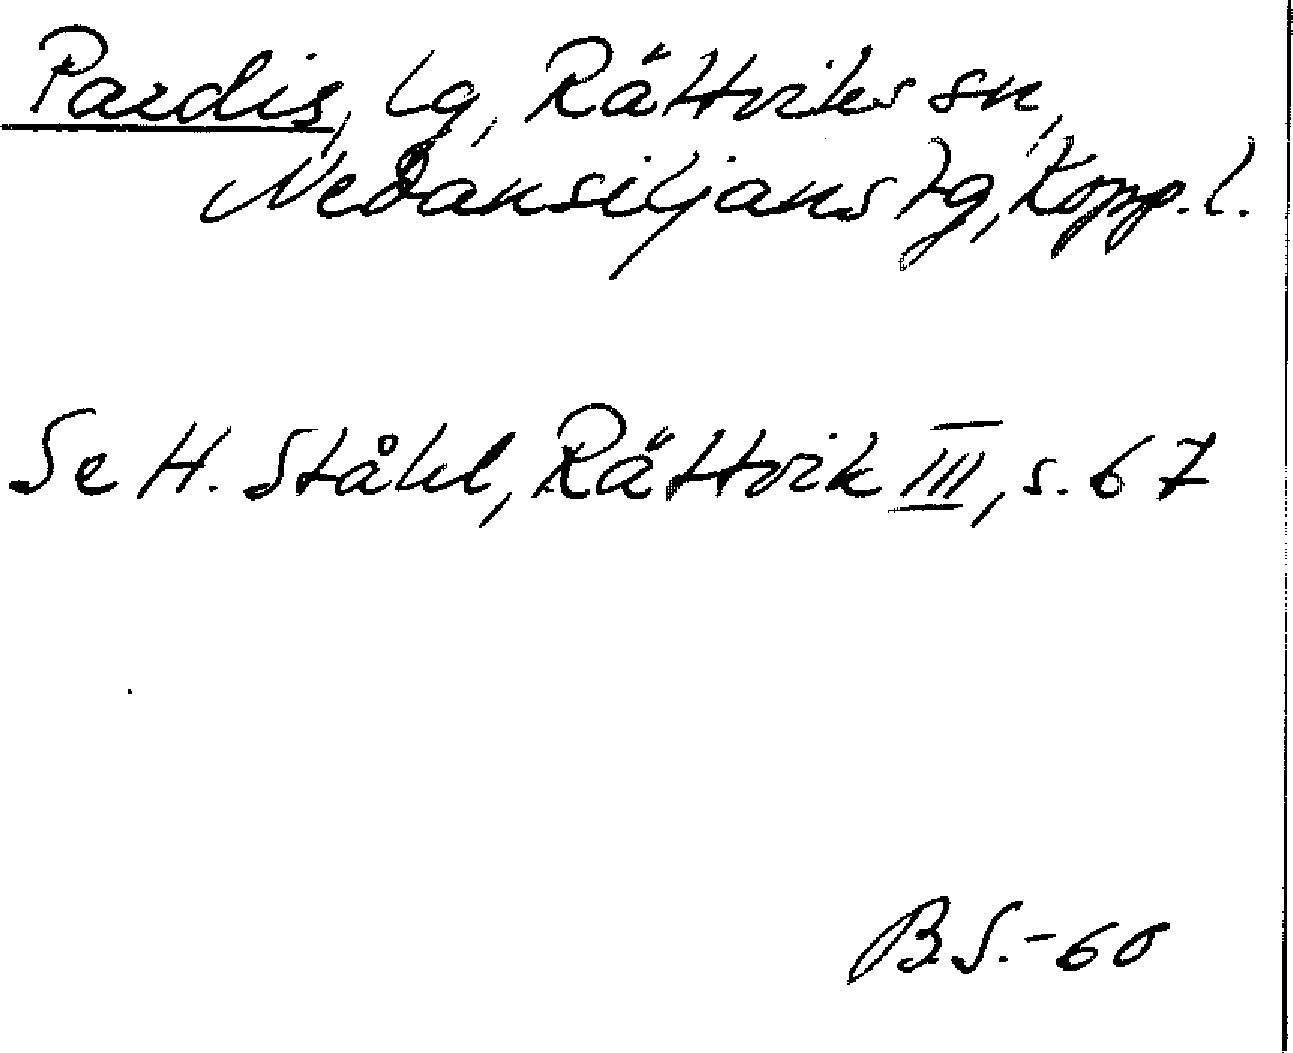 Pardis, lg, Rättviks sn,
Nedansiljans tg, Kopp. l.
Se H. Ståhl, Rättvik III, s. 67
B.S. - 60